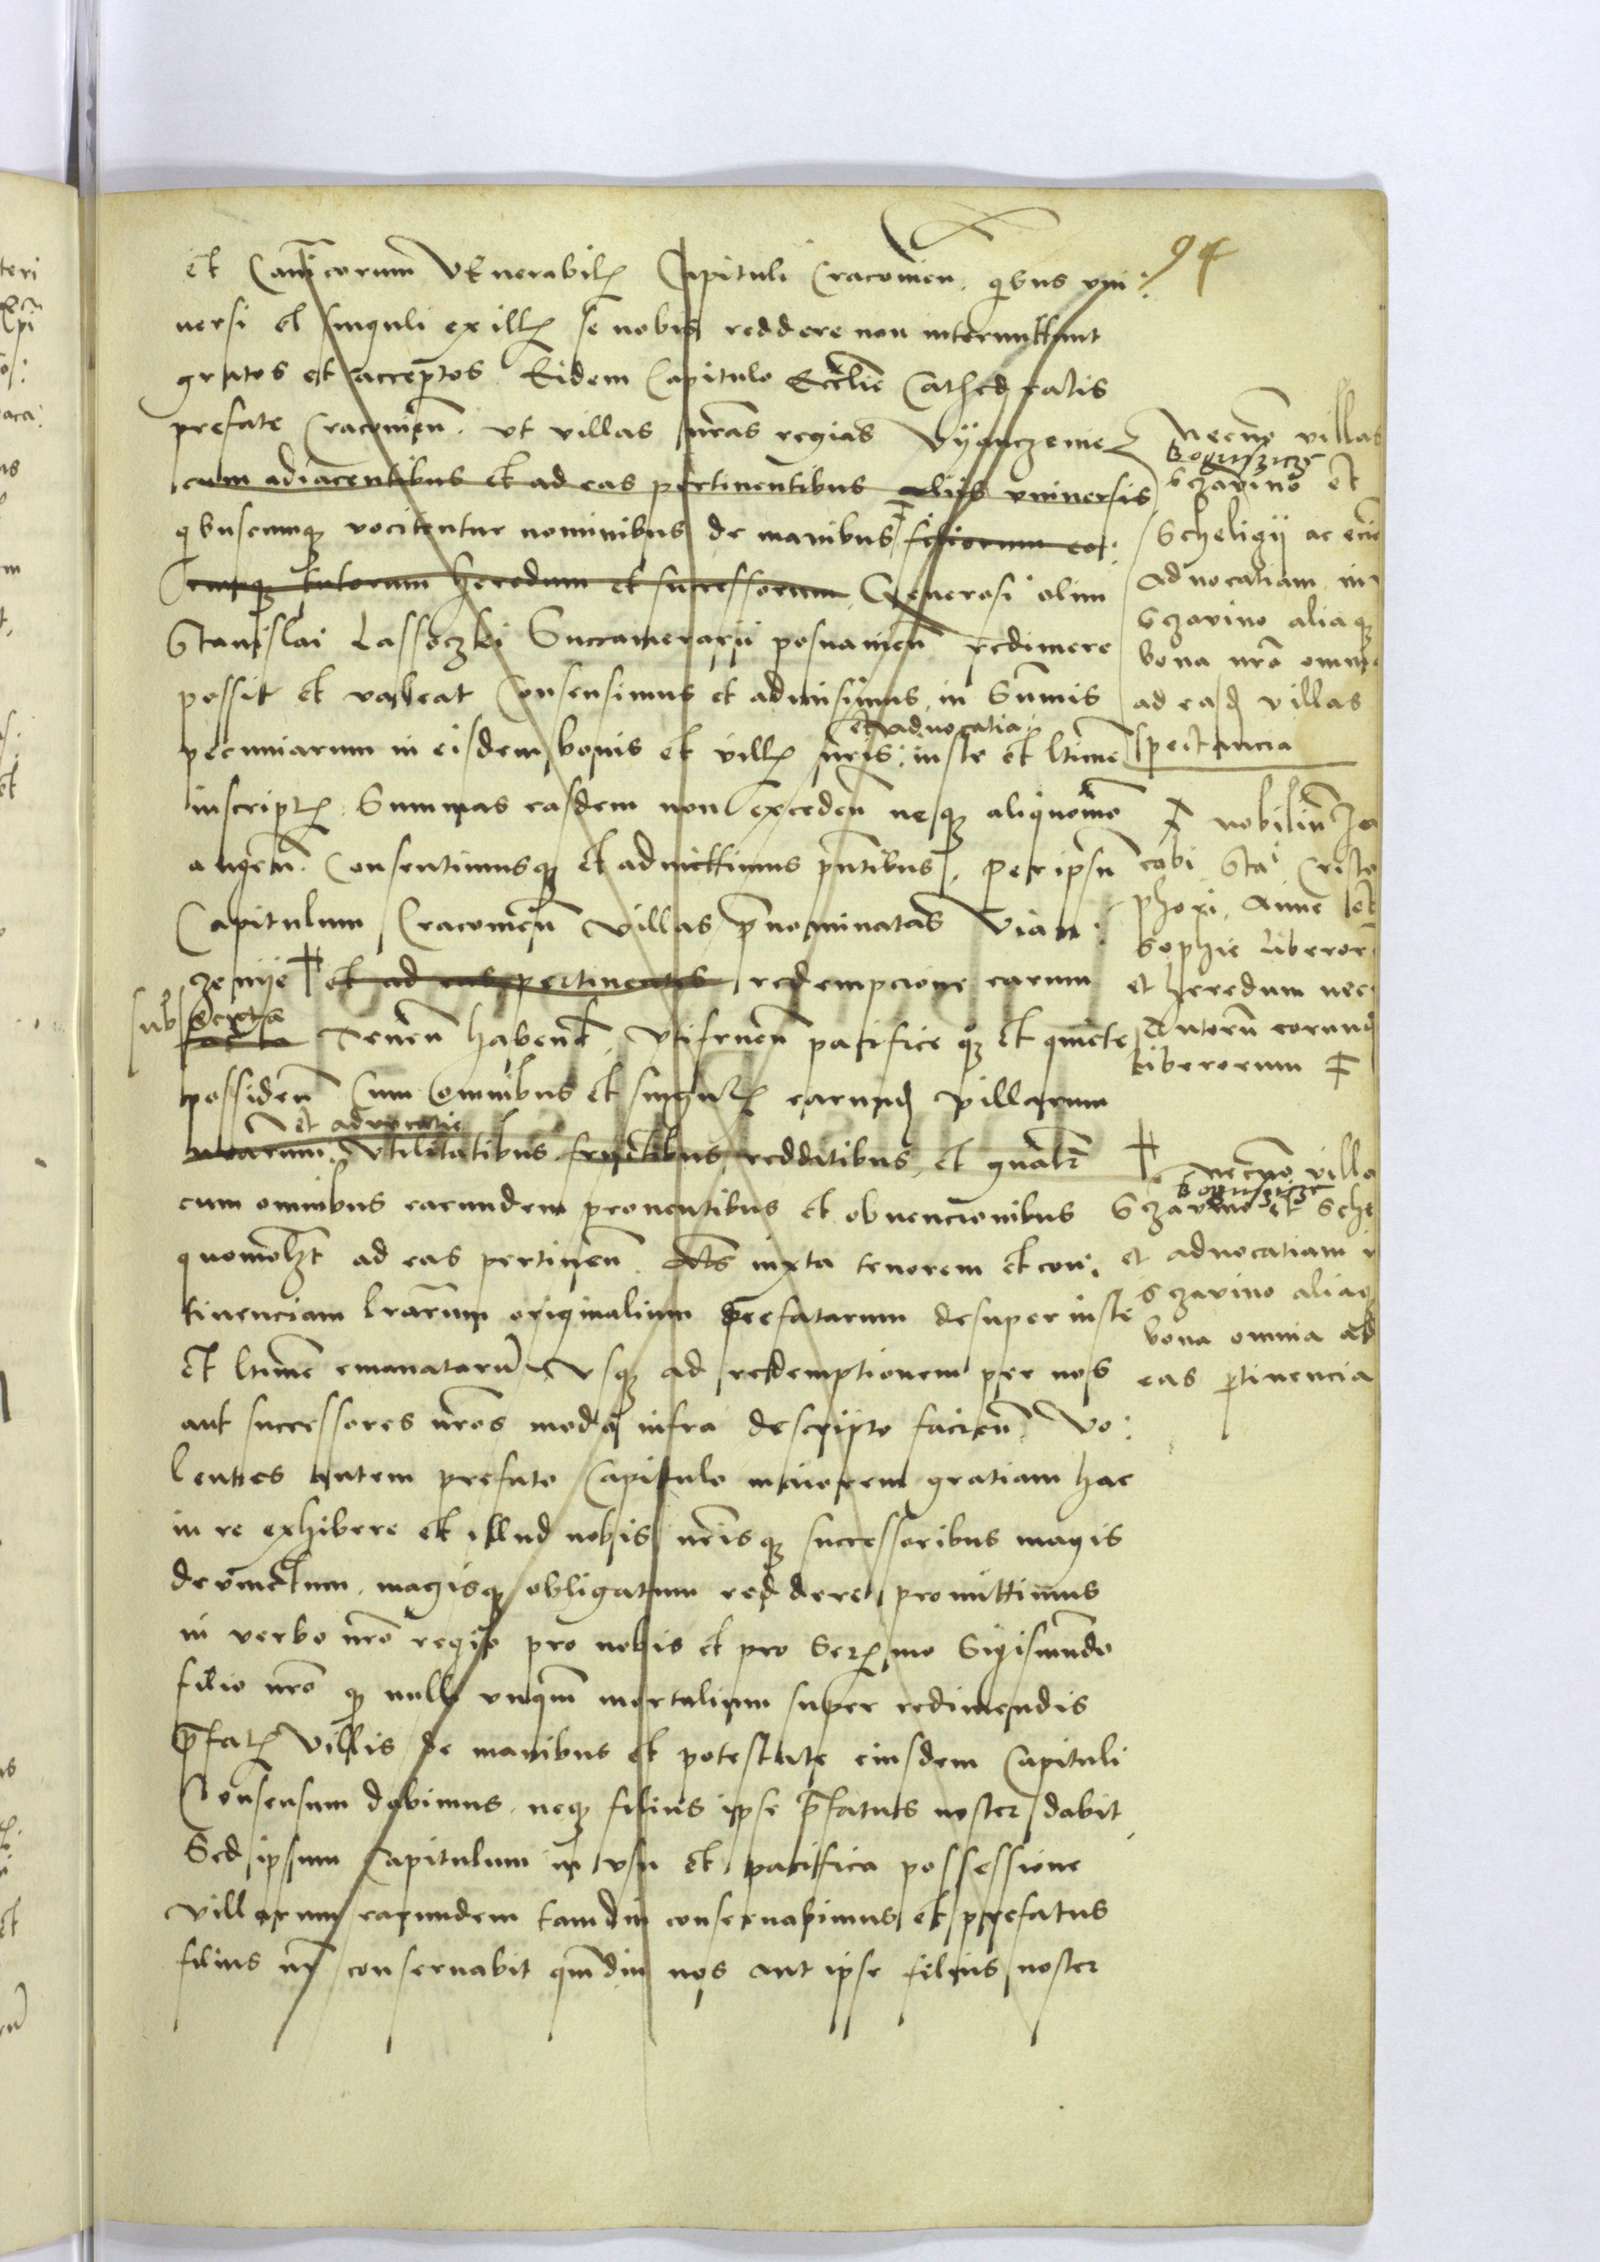 94
et Canicorum Venerabil Capituli Cracovien. qibus vni:
versi et singuli ex ill se nobis reddere non intermittunt
gratos et acceptos. Eidem Capitulo Ecclie Cathedralis
prefate Cracovien. vt villas nras regias Vyanczeme
cum adiacentibus et ad eas pertinentibus aliis vniversis
qibuscumq vocitentur nominibus de manibus filiorum eor:
tutorum heredum et successorum. Generosi olim
Stanislai Lassoczki Succamerarii posnanien redimere
possit et valeat Consensimus et admisimus in Summis
et advocatia
pecuniarum in eisdem bonis et vill nris: iuste et ltime
inscript. Summas easdem non exceden neq aliquomo
augen. Consentimusq et admittimus pntibus. per ipsu
Capitulum Cracovien villas pnominatas Vian:
zenije et ad eas pertinentes redempcione earum
sub scripta
facta Tenen haben. Vtifruen pacifice q et quiete
possiden Cum omnibus et singul earund villarum
et advocatie
nrarum. Vtilitatibus fructibus redditibus et gnalr
cum omnibus earundem proventibus et obvencionibus
quomolzt ad eas pertinen. iuxta tenorem et con:
tinenciam lrarum originalium prefatarum desuper iuste
et ltime emanataru Vsq ad redemptionem per nos
aut successores nros modo infra descripto facien. Vo:
lentes autem prefato Capitulo maiorem gratiam hac
in re exhibere et illud nobis nrisq successoribus magis
devinctum. magisq obligatum reddere promittimus
in verbo nro regio pro nobis et pro Ser mo Sigismundo
filio nro q nulli vnqm mortalium super redimendis
pfat Villis de manibus et potestate eiusdem Capituli
Consensum dabimus. neq filius ipse pfatus noster dabit
Sed ipsum Capitulum in vsu et pacifica possessione
villarum earundem tamdiu conservabimus et prefatus
filius nr conservabit qmdiu nos aut ipse filius noster
necno villas
Boguszicze
Szavino et
Scheligii ac eciã
advocatiam in
Szavino aliaq
bona nra omnia
ad easd villas
spectancia
nobiliu Ja
cobi Sta Cristo
phori. Anne et
Sophie liberor
et heredum nec
Tutoru eorund
liberorum
necno villa
Boguszicze
Szavino et Sche
et advocatiam i
Szavino aliaq
bona omnia ad
eas ptinencia